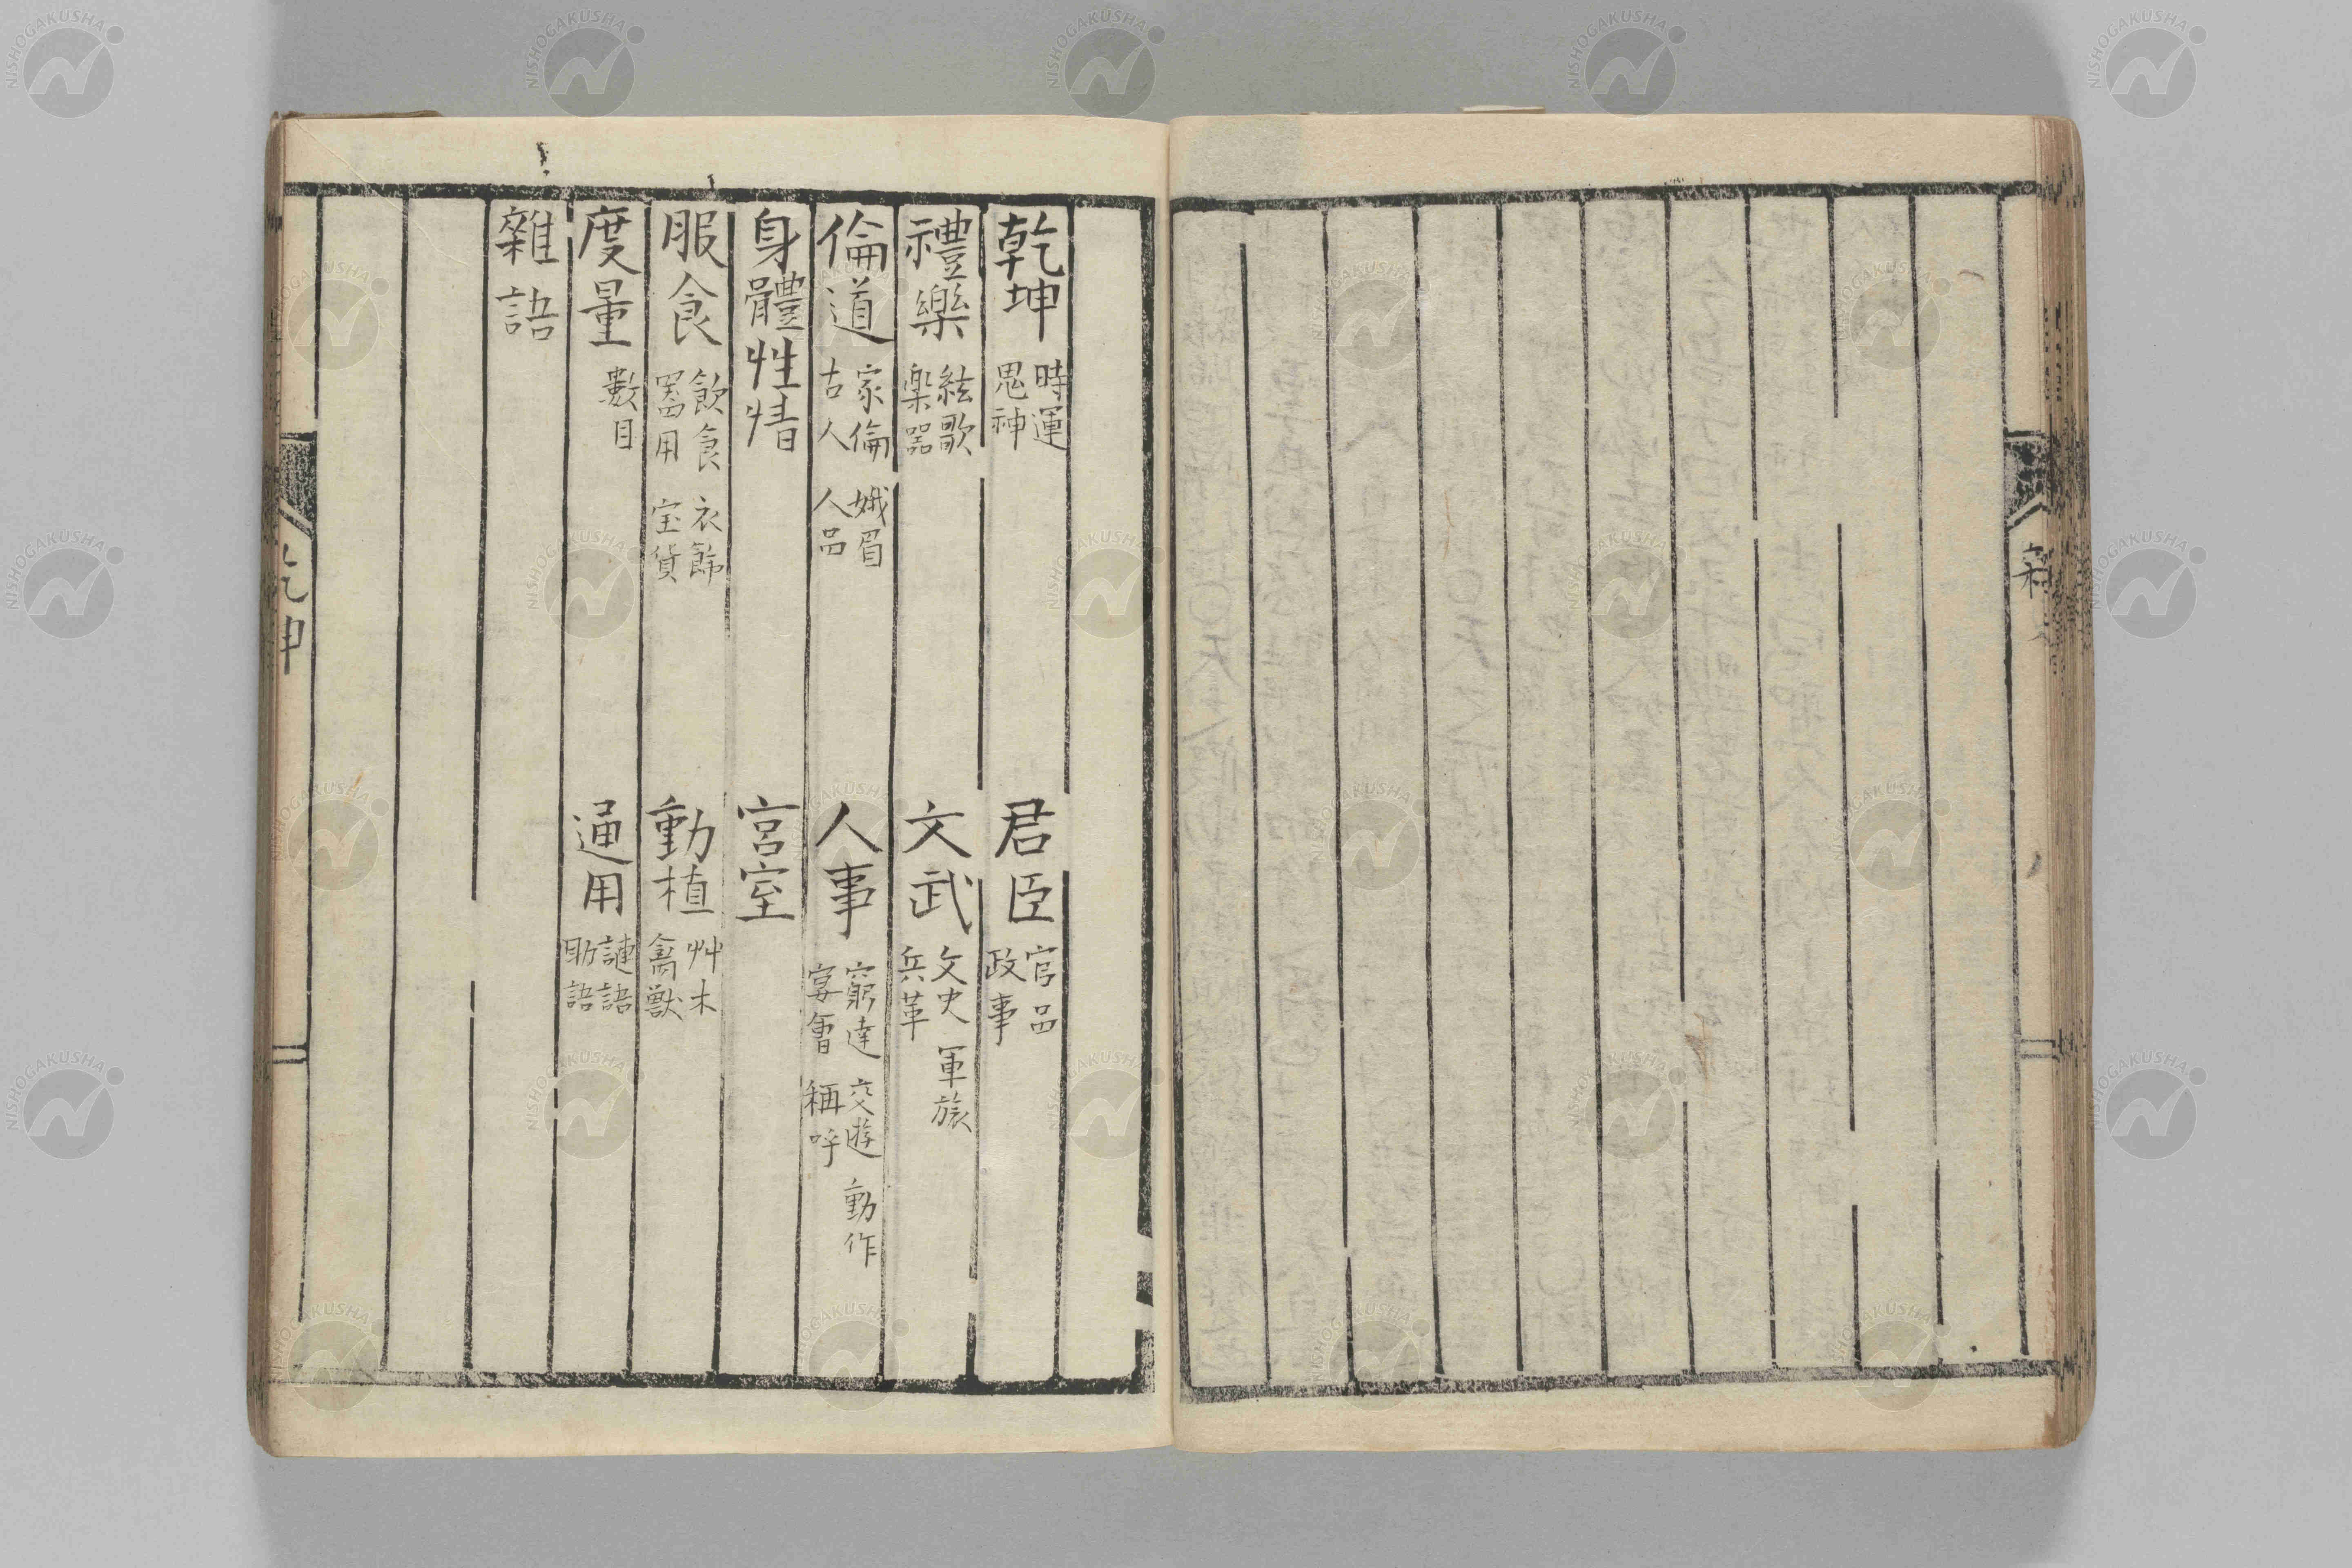 乾坤 時運 鬼神 君臣 官品 政事
禮樂 絃歌 楽器 文武 文史 兵革 軍旅
倫道 家倫 古人 娥眉 人品 人事 窮達 宴會 交遊 稱呼 動作
身體性情 宮室
服食 飲食 器用 衣餙 宝貨 動植 艸木 禽獣
度量 數目 通用 謰語 助語
雜語
乾坤
NISHOGAKUSHA